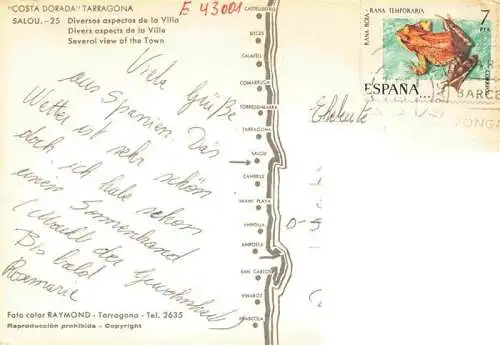 "COSTA DORADA" TARRAGONA
SALOU.-25 Diversos aspectos de la Villa
Divers aspects de la Ville
Several view of the Town
E 43001
Viele Grüße
aus Spanien. Das
Wetter ist sehr schön
doch ich habe schon
einen Sonnenbrand
(Macht der Gewohnheit)
Bis bald
Rosemarie
Foto color RAYMOND - Tarragona - Tel. 2635
Reproducción prohibida - Copyright
CASTELLDEFELS
SITGES
CALAFELL
COMARRUGA
TORREDEMBARRA
TARRAGONA
SALOU
CAMBRILS
MIAMI PLAYA
AMPOLLA
AMPOSTA
SAN CARLOS
VINAROZ
PEÑISCOLA
RANA ROJA - RANA TEMPORARIA
7
PTA
ESPAÑA
CORREOS
BARCE
Eheleute